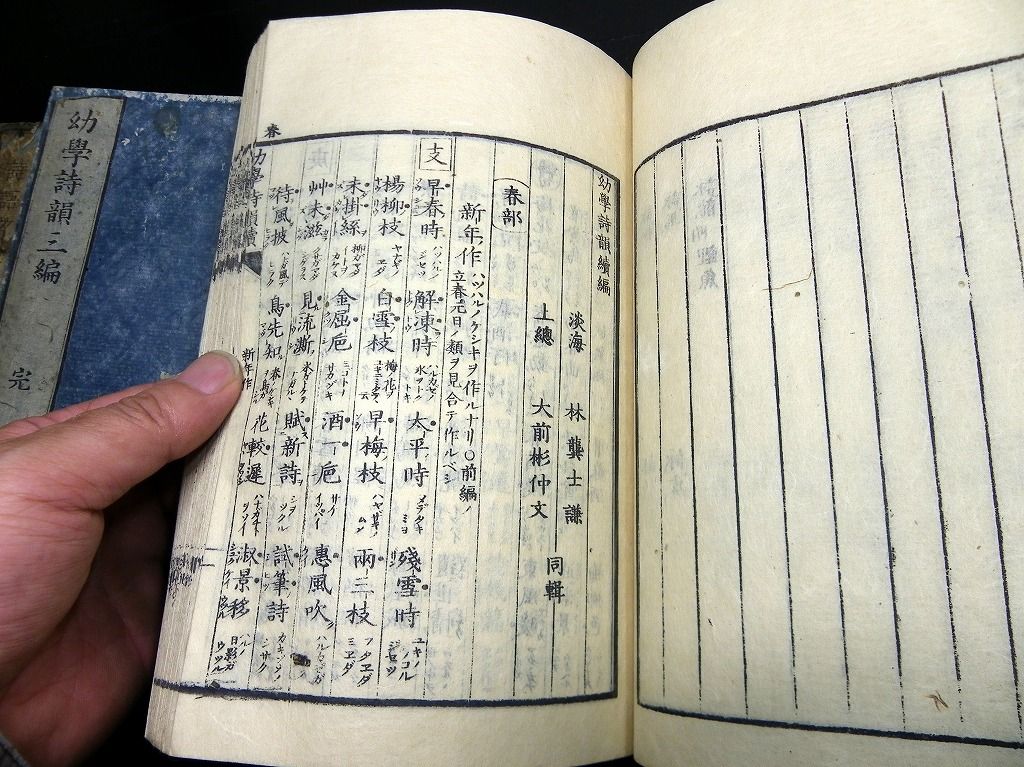 幼學詩韻續編
淡海 林 龔士謙
上總 大前彬仲文 同輯
春部
新年ノ作 ハツハルノケシキヲ作ルナリ○前編ノ
立春元日ノ類ヲ見合テ作ルベシ
支
早春時 解凍時 太平時 メデタキミヨ 殘雪時 ユキノノコルジセツ
楊柳枝 ヤナギノエダ 白雪枝 早梅枝 兩三枝 フタエダミエダ
未掛絲 金屈巵 酒一巵 惠風吹
艸未滋 見流澌 賦新詩 シヲツクル 試筆詩
待風披 鳥先知 花較遲 淑景移 ハル日影ガウツル
春
幼學詩韻續
新年作
幼學詩韻三編
完